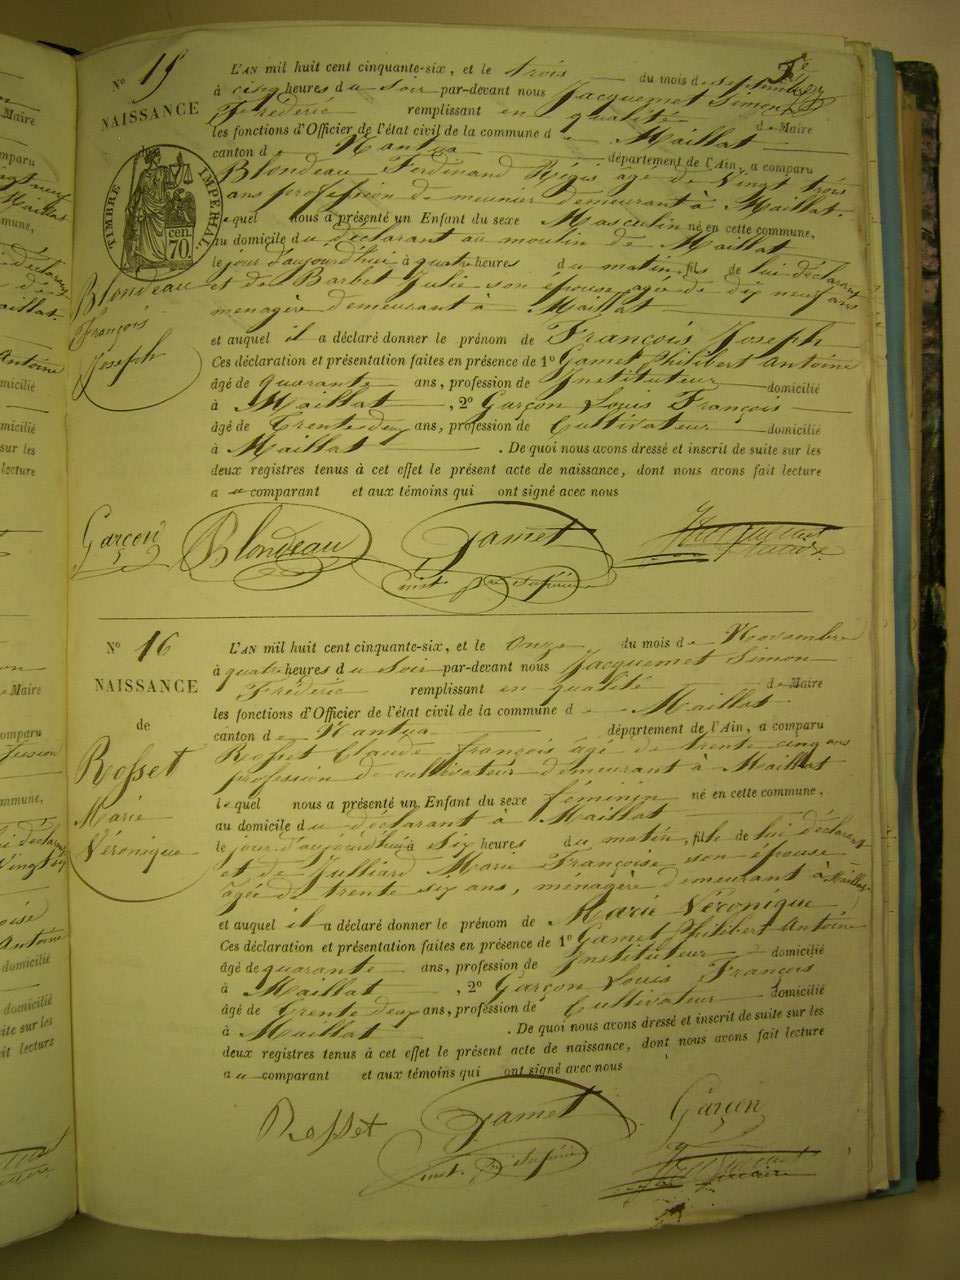 N° 15
NAISSANCE
TIMBRE IMPERIAL.
cen.
70.
Blondeau
François
Joseph
L'AN mil huit cent cinquante-six, et le trois du mois de septembre
à cinq heures du soir par-devant nous Jacquemet Simon
Fréderic remplissant en qualité de Maire
les fonctions d'Officier de l'état civil de la commune de Maillat
canton de Nantua département de l'Ain, a comparu
Blondeau Ferdinand Régis agé de vingt trois
ans profession de meunier demeurant à Maillat.
lequel nous a présenté un Enfant du sexe Masculin né en cette commune,
au domicile du déclarant au moulin de Maillat
le jour d'aujourd'hui à quatre heures du matin, fils de lui déclarant
et de Barbet Julie son épouse agée de dix neuf ans
menagère demeurant à Maillat
et auquel il a déclaré donner le prénom de François Joseph
Ces déclaration et présentation faites en présence de 1° Gamet Philibert Antoine
âgé de quarante ans, profession de Instituteur domicilié
à Maillat, 2° Garçon Louis François
âgé de Trente deux ans, profession de Cultivateur domicilié
à Maillat. De quoi nous avons dressé et inscrit de suite sur les
deux registres tenus à cet effet le présent acte de naissance, dont nous avons fait lecture
au comparant et aux témoins qui ont signé avec nous
Garçon Blondeau Gamet
N° 16
NAISSANCE
de
Rosset
Marie
Véronique
L'AN mil huit cent cinquante-six, et le onze du mois de Novembre
à quatre heures du soir par-devant nous Jacquemet Simon
Fréderic remplissant en qualité de Maire
les fonctions d'Officier de l'état civil de la commune de Maillat
canton de Nantua département de l'Ain, a comparu
Rosset Claude françois âgé de trente cinq ans
profession de cultivateur demeurant à Maillat
lequel nous a présenté un Enfant du sexe féminin né en cette commune,
au domicile du déclarant à Maillat
le jour d'aujourd'hui à six heures du matin, fille de lui déclarant
et de Julliard Marie Françoise son épouse
âgée de trente six ans, ménagère demeurant à Maillat
et auquel il a déclaré donner le prénom de Marie Véronique
Ces déclaration et présentation faites en présence de 1° Gamet Philibert Antoine
âgé de quarante ans, profession de Instituteur domicilié
à Maillat, 2° Garçon Louis François
âgé de Trente deux ans, profession de Cultivateur domicilié
à Maillat. De quoi nous avons dressé et inscrit de suite sur les
deux registres tenus à cet effet le présent acte de naissance, dont nous avons fait lecture
au comparant et aux témoins qui ont signé avec nous
Rosset Gamet Garçon